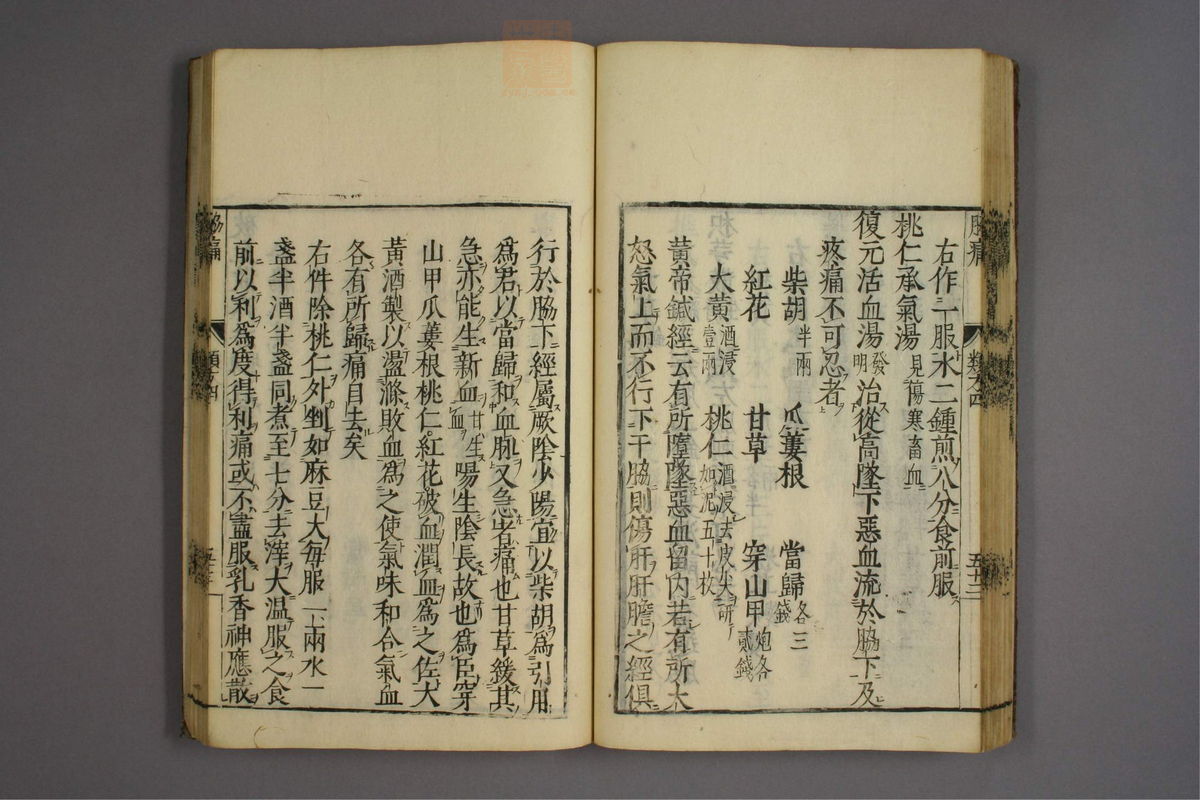 脇痛 類方四 五十二
右作一服水二鍾煎八分食前服
桃仁承氣湯 見傷寒畜血
復元活血湯 發明 治從高墜下惡血流於脇下及
疼痛不可忍者
柴胡 半兩 瓜蔞根 當歸 各三錢
紅花 甘草 穿山甲 炮各貳錢
大黃 酒浸壹兩 桃仁 酒浸去皮尖研如泥五十枚
黃帝鍼經云有所墮墜惡血留内若有所大
怒氣上而不行下于脇則傷肝肝膽之經俱
行於脇下經屬厥陰少陽宜以柴胡爲引用
爲君以當歸和血脉又急者痛也甘草緩其
急亦能生新血 甘生血 陽生陰長故也爲臣穿
山甲瓜蔞根桃仁紅花破血潤血爲之佐大
黃酒製以盪滌敗血爲之使氣味和合氣血
各有所歸痛自去矣
右件除桃仁外剉如麻豆大每服一兩水一
盞半酒半盞同煮至七分去滓大温服之食
前以利爲度得利痛或不盡服乳香神應散
脇痛 類方四